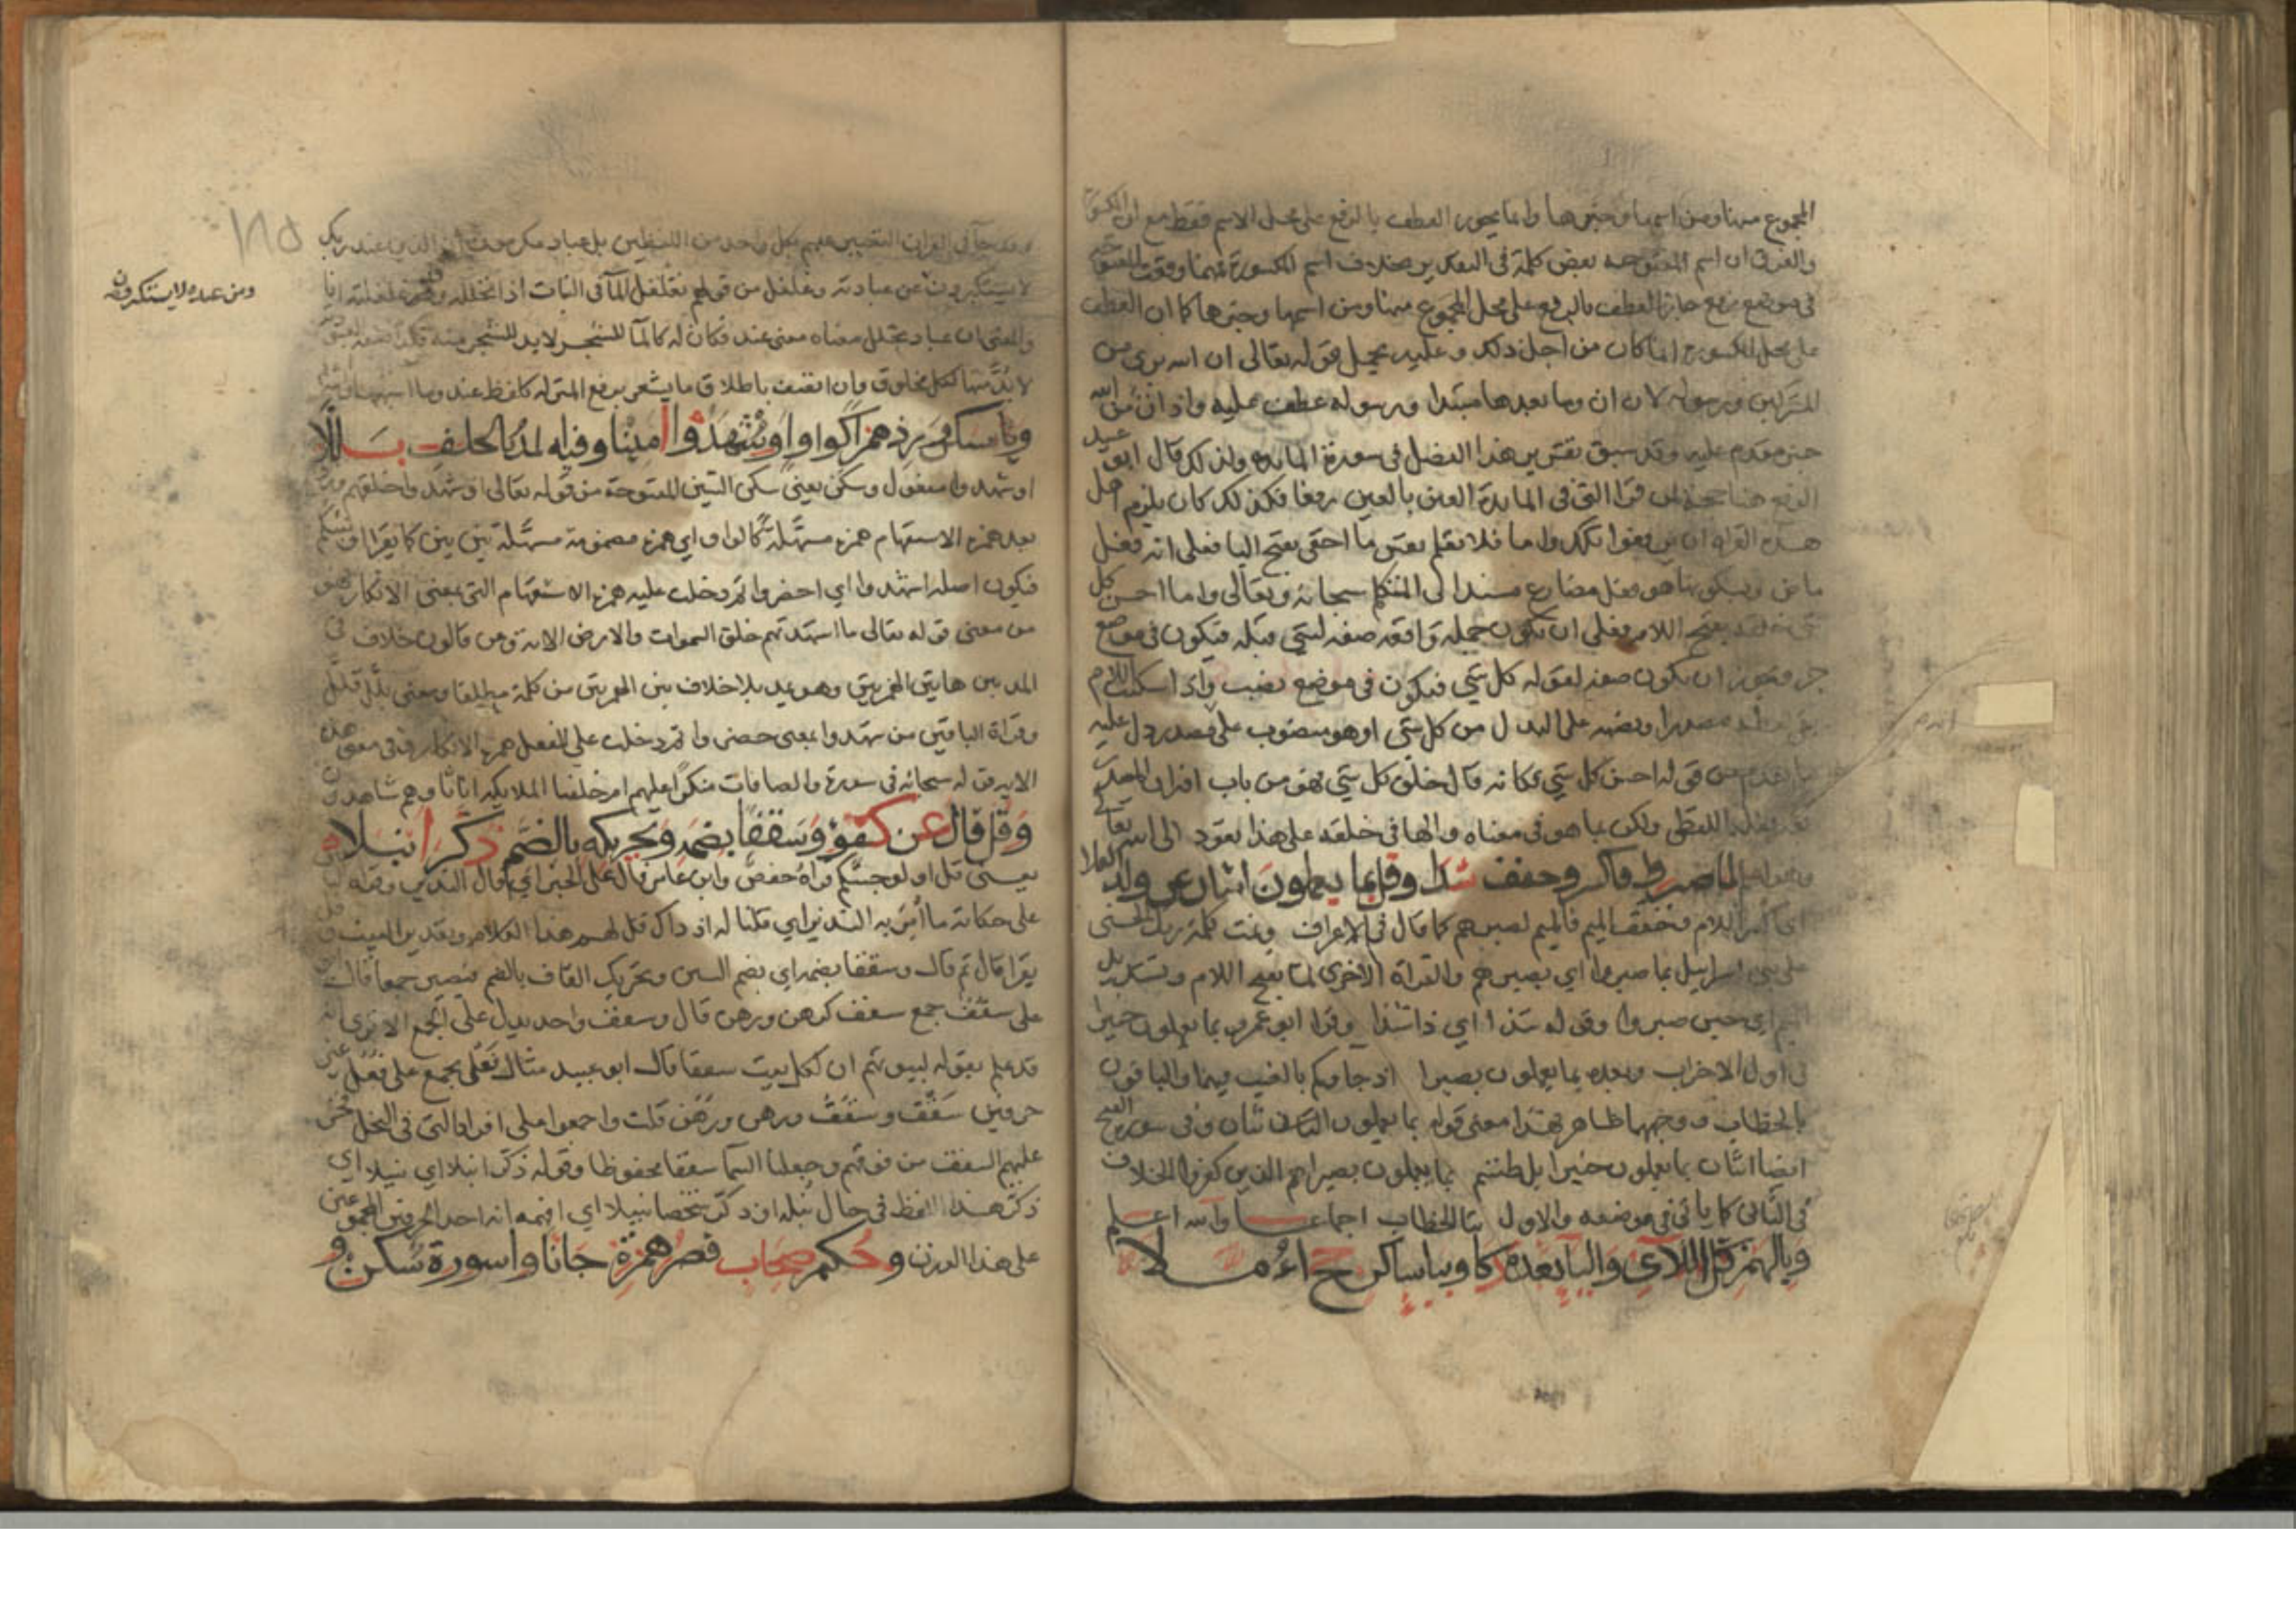 المجموع منها ومن اسمها وخبرها وانما يجوز العطف بالرفع على محل الاسم فقط مع ان المكسورة
والفرق ان اسم المفتوحة بعض كلمة في التقدير بخلاف اسم المكسورة فمهما وقعت المفتوحة
في موضع رفع جاز العطف بالرفع على محل المجموع منها ومن اسمها وخبرها كما ان العطف
على محل المكسورة انما كان من اجل ذلك وعليه يحمل قوله تعالى ان الله بري من
المشركين ورسوله لان ان وما بعدها مبتدا ورسوله عطف عليه واذان من الله
خبر مقدم عليه وقد سبق تقرير هذا الفصل في سورة المائدة ولذلك قال ابو عبيد
الرفع هنا حجة لمن قرا التي في المائدة العين بالعين رفعا فكذلك كان يلزم اهل
هذه القراه ان يرفعوا تلك واما فلا تعلم نفس ما اخفي بفتح اليا فعلى انه فعل
ماض وبسكونها هو فعل مضارع مسند الى المتكلم سبحانه وتعالى واما احسن كل
شي خلقه بفتح اللام فعلى ان تكون جملة واقعة صفة لشي قبله فيكون في موضع
جر ويجوز ان تكون صفة لقوله كل شي فيكون في موضع نصب واذا اسكنت اللام
مصدرا ونصبه على البدل من كل شي او هو منصوب على مصدر دل عليه
ما تقدم من قوله احسن كل شي فكانه قال خلق كل شي فهو من باب
اللفظي ولكن بما هو في معناه والها في خلقه على هذا تعود الى الله تعالى
لما صبروا فاكسر وخفف شذا وقل بما يعملون اثنان عن ولد العلا
اي اكسر اللام وخفف الميم فالميم لصبرهم كما قال في الاعراف وتمت كلمة ربك الحسنى
على بني اسرايل بما صبروا اي بصبرهم والقراة الاخرى لما بفتح اللام وتشديد
الميم اي حين صبروا وقوله شذا اي ذا شذا وقرا ابو عمرو بما يعملون خبيرا
في اول الاحزاب وبعده بما يعملون بصيرا اذ جاوكم بالغيب فيهما والباقون
بالخطاب ووجههما ظاهر فهذا معنى قوله بما يعملون اثنان وفي سورة الفتح
ايضا اثنان بما يعملون خبيرا بل ظننتم بما يعملون بصيرا هم الذين كفروا الخلاف
في الثاني كما ياتي في موضعه والاول بتا الخطاب اجماعا والله اعلم
وبالهمز كل اللاي واليا بعده ذكا وبيا ساكن حج هملا
وقد جا في القران التعبير عنهم بكل واحد من اللفظين بل عباد مكرمون ان الذين عند ربك
لا يستكبرون عن عبادته وغلغل من قولهم تغلغل الما في النبات اذا تخلله وغلغلته انا
والمعنى ان عباد تخلل معناه معنى عند فكان له كالما للشجر لابد للشجر منه
لابد منها لكل مخلوق وان اتفق باطلاق ما يشعر برفع المنزلة كلفظ عند وما اشبهها
ومن عنده لا يستكبرون
وسكن وزد همزا كواو اوشهدوا امينا وفيه المد بالخلف بللا
اوشهدوا مفعول وسكن يعني سكن الشين المفتوحة من قوله تعالى اوشهدوا خلقهم وزد
بعد همزة الاستفهام همزة مسهلة كالواو اي همزة مضمومة مسهلة بين بين كما يقرا
فيكون اصله اشهدوا اي احضروا ثم دخلت عليه همزة الاستفهام التي بمعنى الانكار فهو
من معنى قوله تعالى ما اشهدتهم خلق السموات والارض الاية وعن قالون خلاف في
المد بين هاتين الهمزتين وهو يمد بلا خلاف بين الهمزتين من كلمة مطلقا ومعنى بلل قلل
وقراة الباقين من شهدوا بمعنى حضروا ثم دخلت على الفعل همزة الانكار وفي معنى هذه
الاية قوله سبحانه في سورة والصافات منكرا عليهم ام خلقنا الملايكة اناثا وهم شاهدون
وقل قال عن كفو وسقفا بضمه وتحريكه بالضم ذكر انبلا
يعني قل اولو جئتكم قراه حفص وابن عامر قال على الخبر اي قال النذير
على حكاية ما امر به النذير اي قلنا له اذ ذاك قل لهم هذا الكلام
يقرا قال ثم قال وسقفا بضمه اي بضم السين وتحريك القاف بالضم فيصير جمعا
على سقف جمع سقف كرهن ورهن قال وسقف واحد يدل على الجمع الا ترى انه
قد علم بقوله لبيوتهم ان لكل بيت سقفا قال ابو عبيد مثال فعل يجمع على فعل غير
حرفين سقف وسقف ورهن ورهن قلت واجمعوا على افراد التي في النحل فخر
عليهم السقف من فوقهم وجعلنا السما سقفا محفوظا وقوله ذكر انبلا اي نبيلا اي
ذكر هذا اللفظ في حال نبله او ذكر شخصا نبيلا اي افهمه انه احد الحرفين المجموعين
على هذا الوزن وحكم صحاب قصر همزة جانا واسورة سكن و